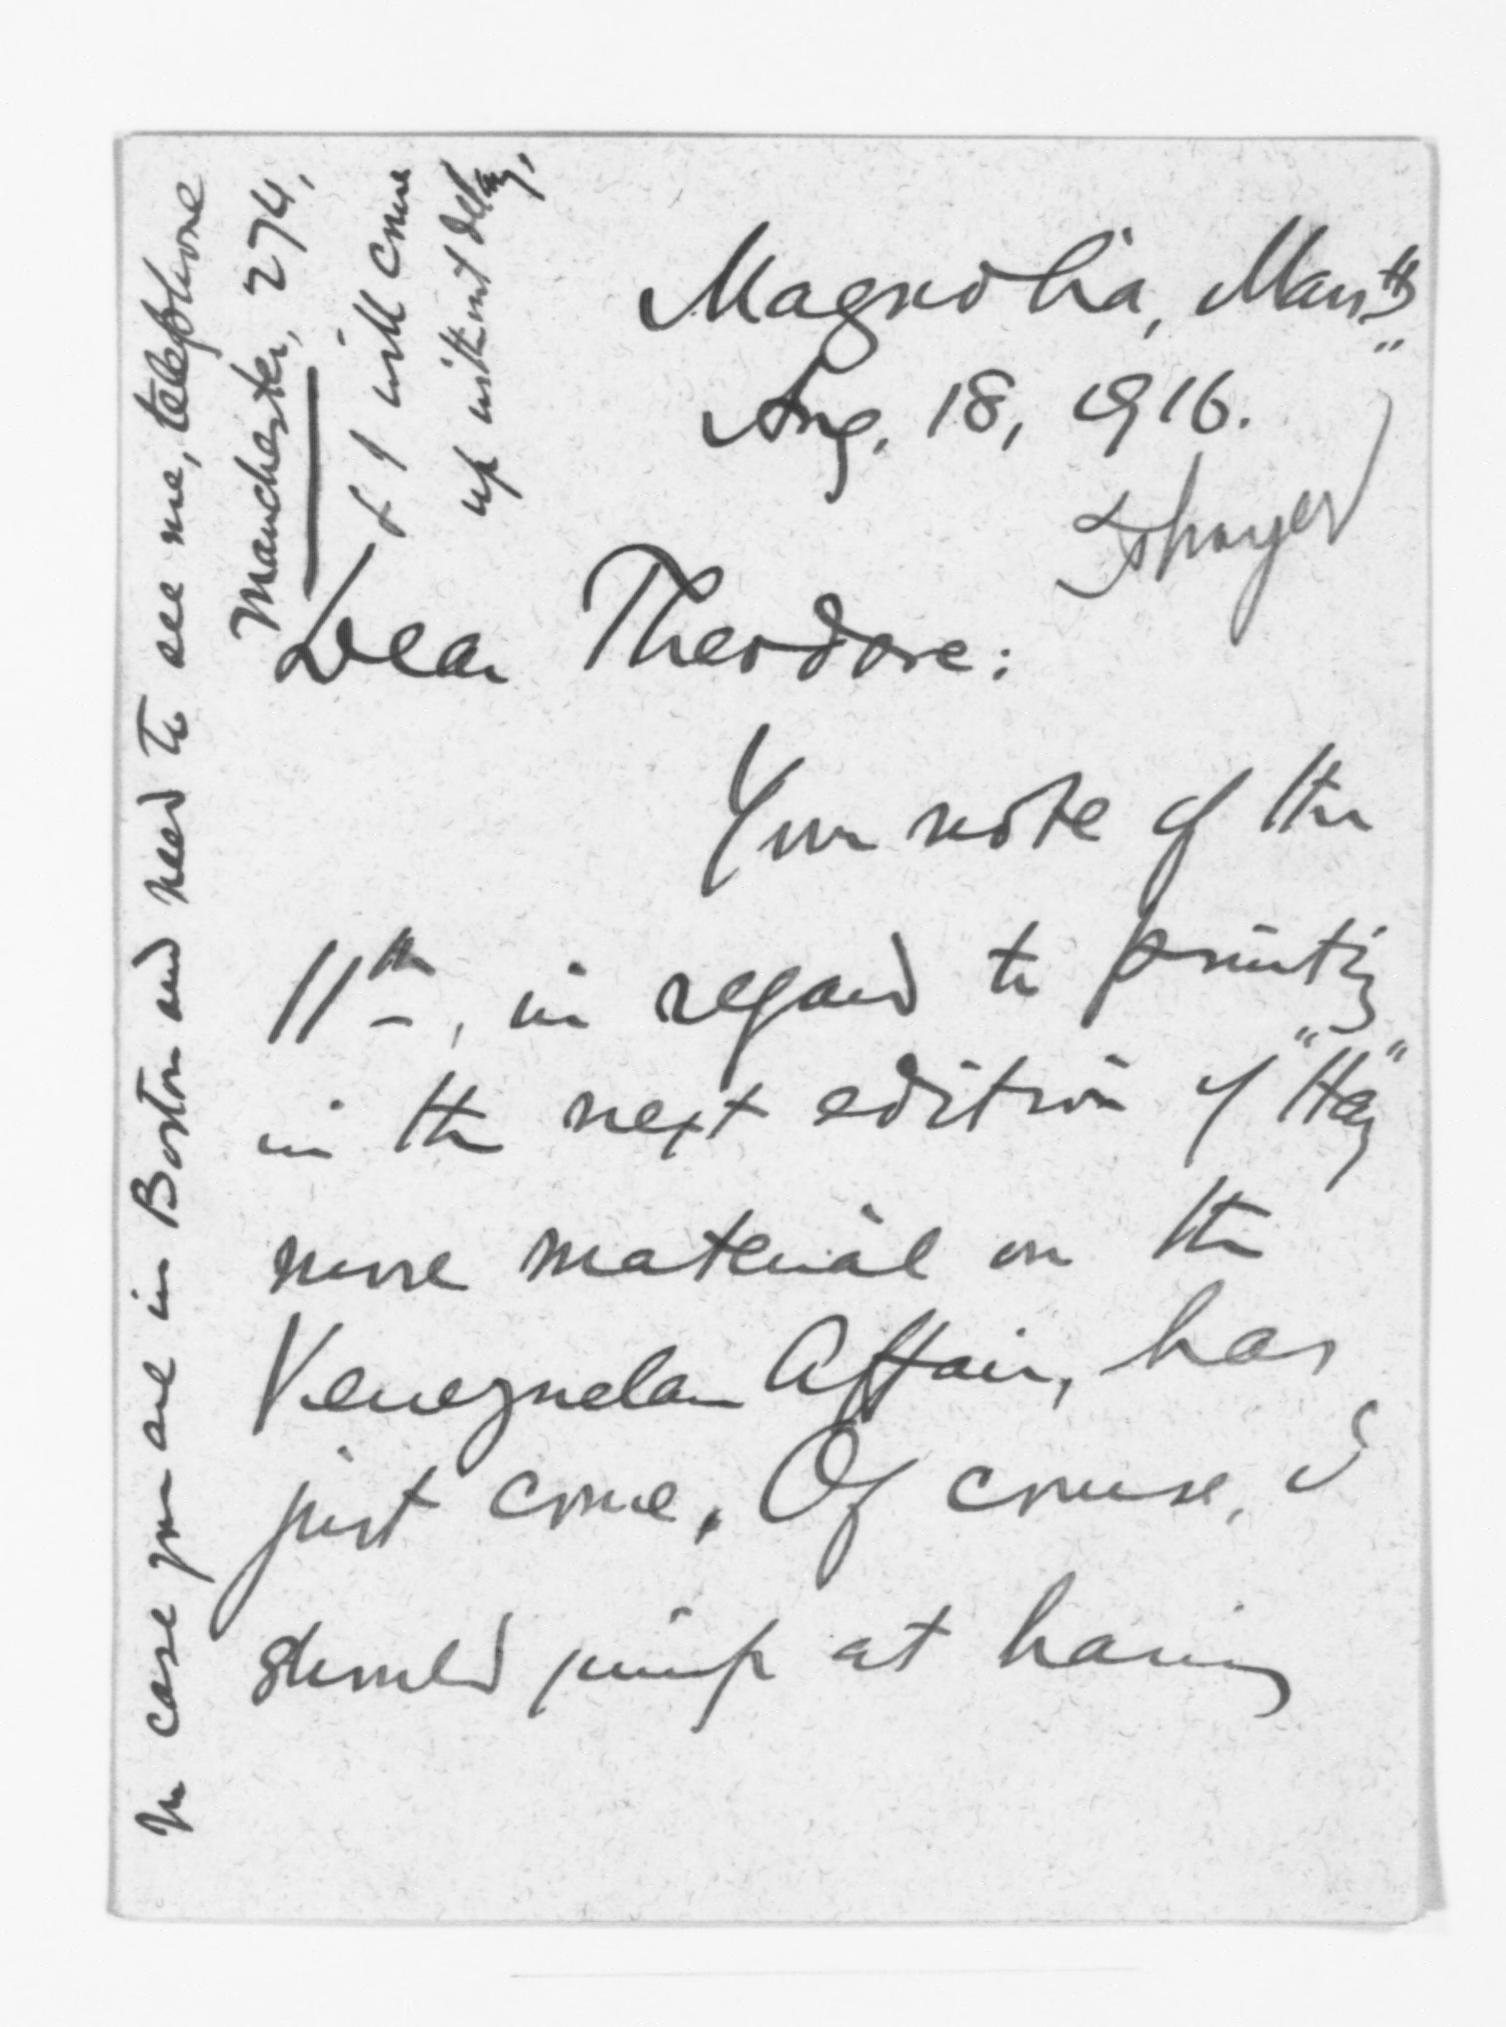 Magnolia, Mass.
Aug. 18, 1916.
Thayer
Dear Theodore:
Your note of the
11th, in regard to printing
in the next edition of "Hay"
more material on the
Venezuelan Affair, has
just come. Of course, I
should jump at having
In case you are in Boston and need to see me, telephone
Manchester, 274,
& I will come
up without delay.